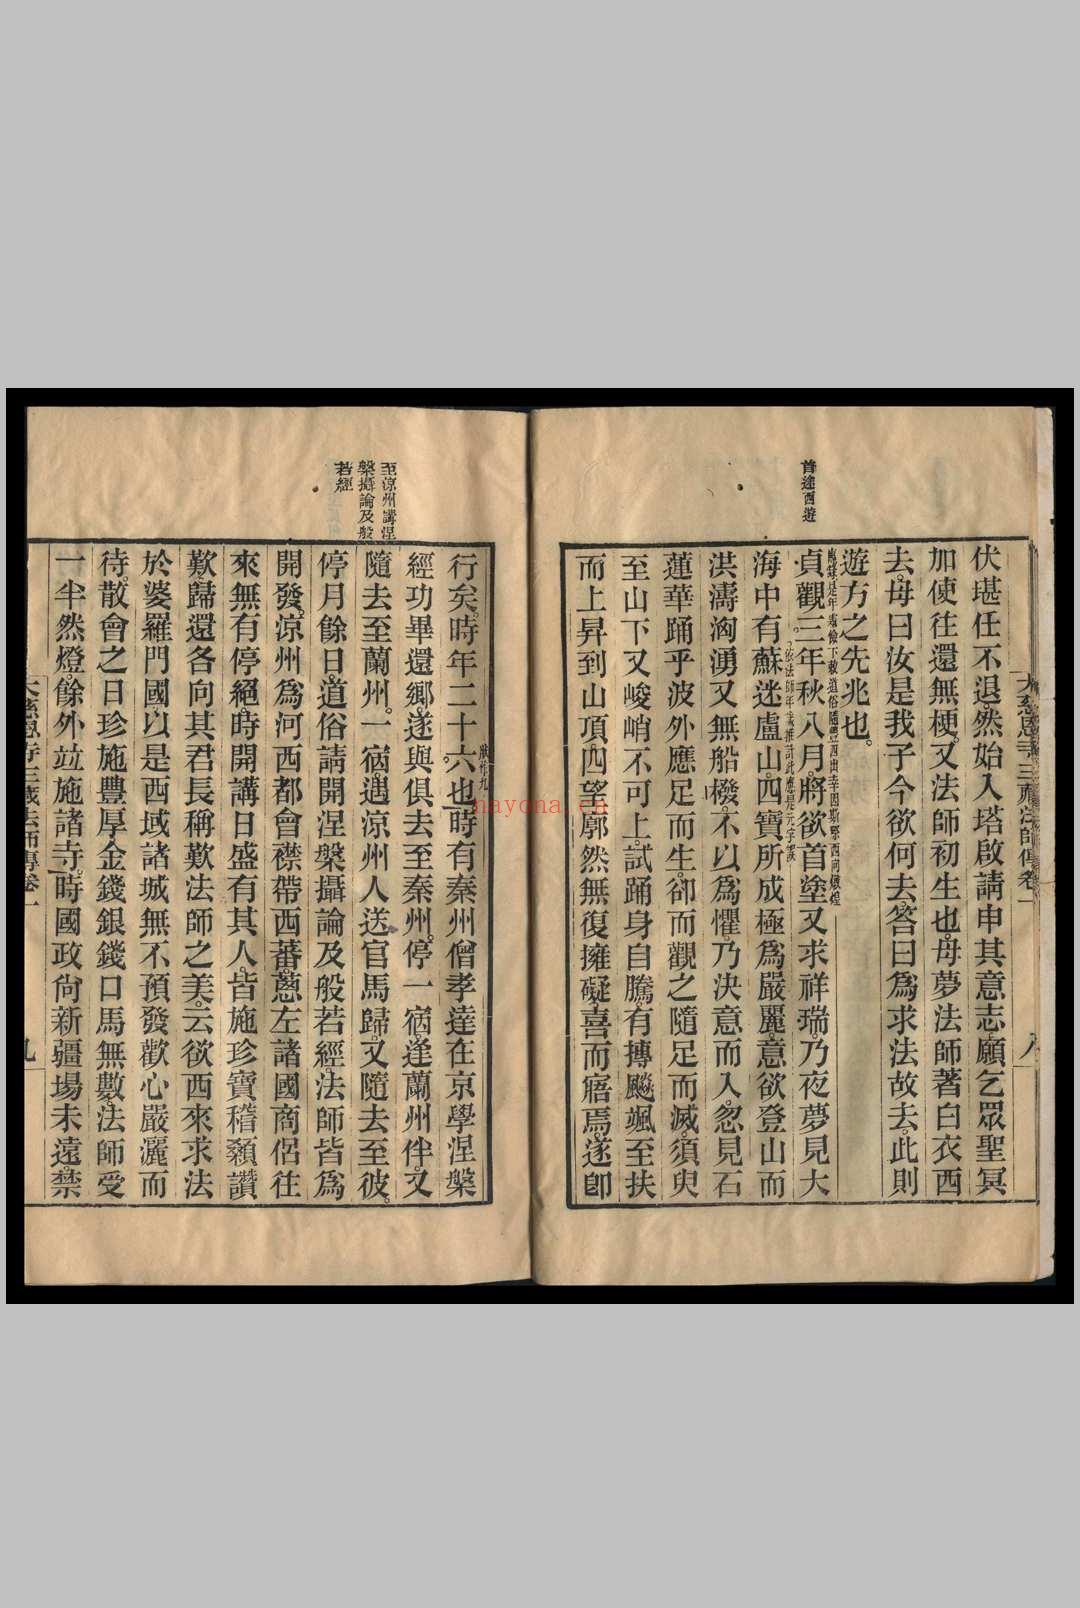 大慈恩寺三藏法師傳卷一
八
伏堪任不退然始入塔啟請申其意志願乞眾聖冥
加使往還無梗又法師初生也母夢法師著白衣西
去母曰汝是我子今欲何去答曰爲求法故去此則
遊方之先兆也
首途西遊
貞觀三年秋八月將欲首塗又求祥瑞乃夜夢見大
海中有蘇迷盧山四寶所成極爲嚴麗意欲登山而
洪濤洶湧又無船橃不以爲懼乃決意而入忽見石
蓮華踊乎波外應足而生卻而觀之隨足而滅須臾
至山下又峻峭不可上試踊身自騰有摶飈颯至扶
而上昇到山頂四望廓然無復擁礙喜而寤焉遂卽
行矣時年二十六也時有秦州僧孝達在京學涅槃
經功畢還鄉遂與俱去至秦州停一宿逢蘭州伴又
隨去至蘭州一宿遇涼州人送官馬歸又隨去至彼
至涼州講涅
槃攝論及般
若經
停月餘日道俗請開涅槃攝論及般若經法師皆爲
開發涼州爲河西都會襟帶西蕃蔥左諸國商侶往
來無有停絕時開講日盛有其人皆施珍寶稽顙讚
歎歸還各向其君長稱歎法師之美云欲西來求法
於婆羅門國以是西域諸城無不預發歡心嚴灑而
待散會之日珍施豐厚金錢銀錢口馬無數法師受
一半然燈餘外竝施諸寺時國政尙新疆場未遠禁
大慈恩寺三藏法師傳卷一
九
nayona.cn